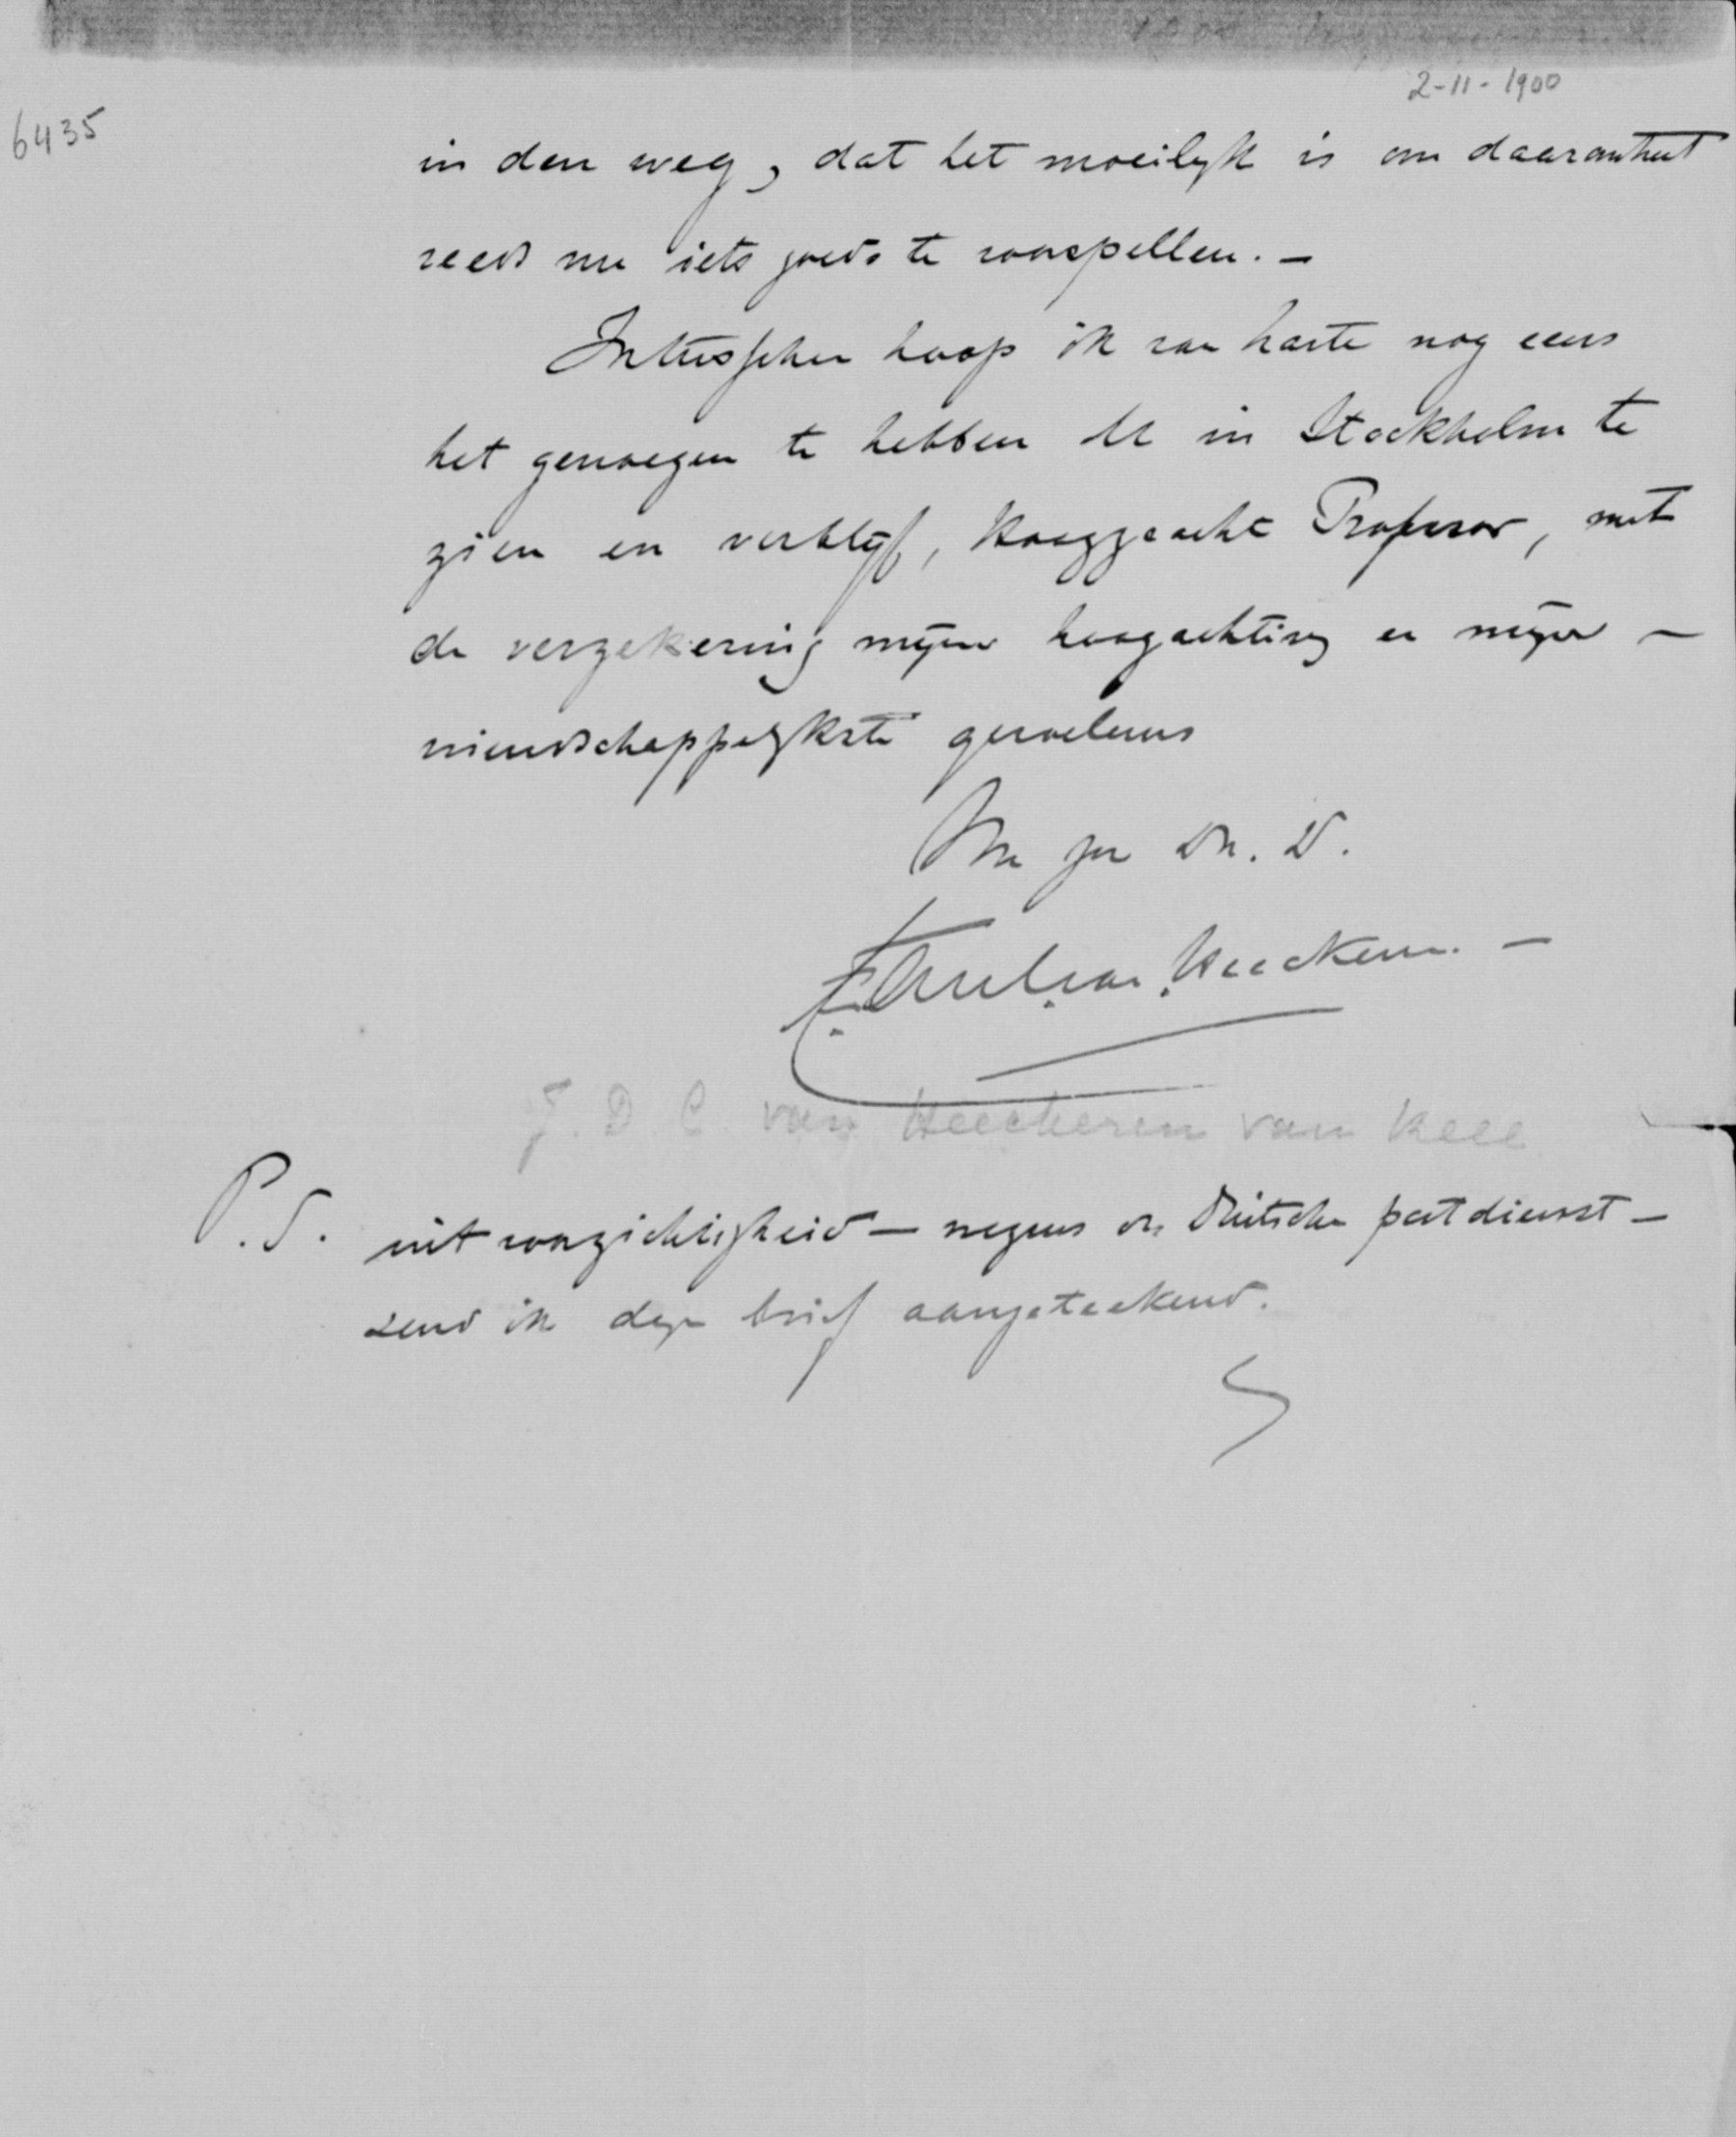 2-11-1900
6435
in den weg, dat het moeilijk is om daaromtrent
reeds nu iets goeds te voorspellen. —
Intusschen hoop ik van harte nog eens
het genoegen te hebben U in Stockholm te
zien en verblijf, Hooggeachte Professor, met
de verzekering mijner hoogachting en mijner —
vriendschappelijkste gevoelens
Uw zeer Dw. D.
van Heeckeren. —
J. D. C. van Heeckeren van Kell
P.S. uit voorzichtigheid — wegens de Duitsche postdienst —
zend ik deze brief aangeteekend.